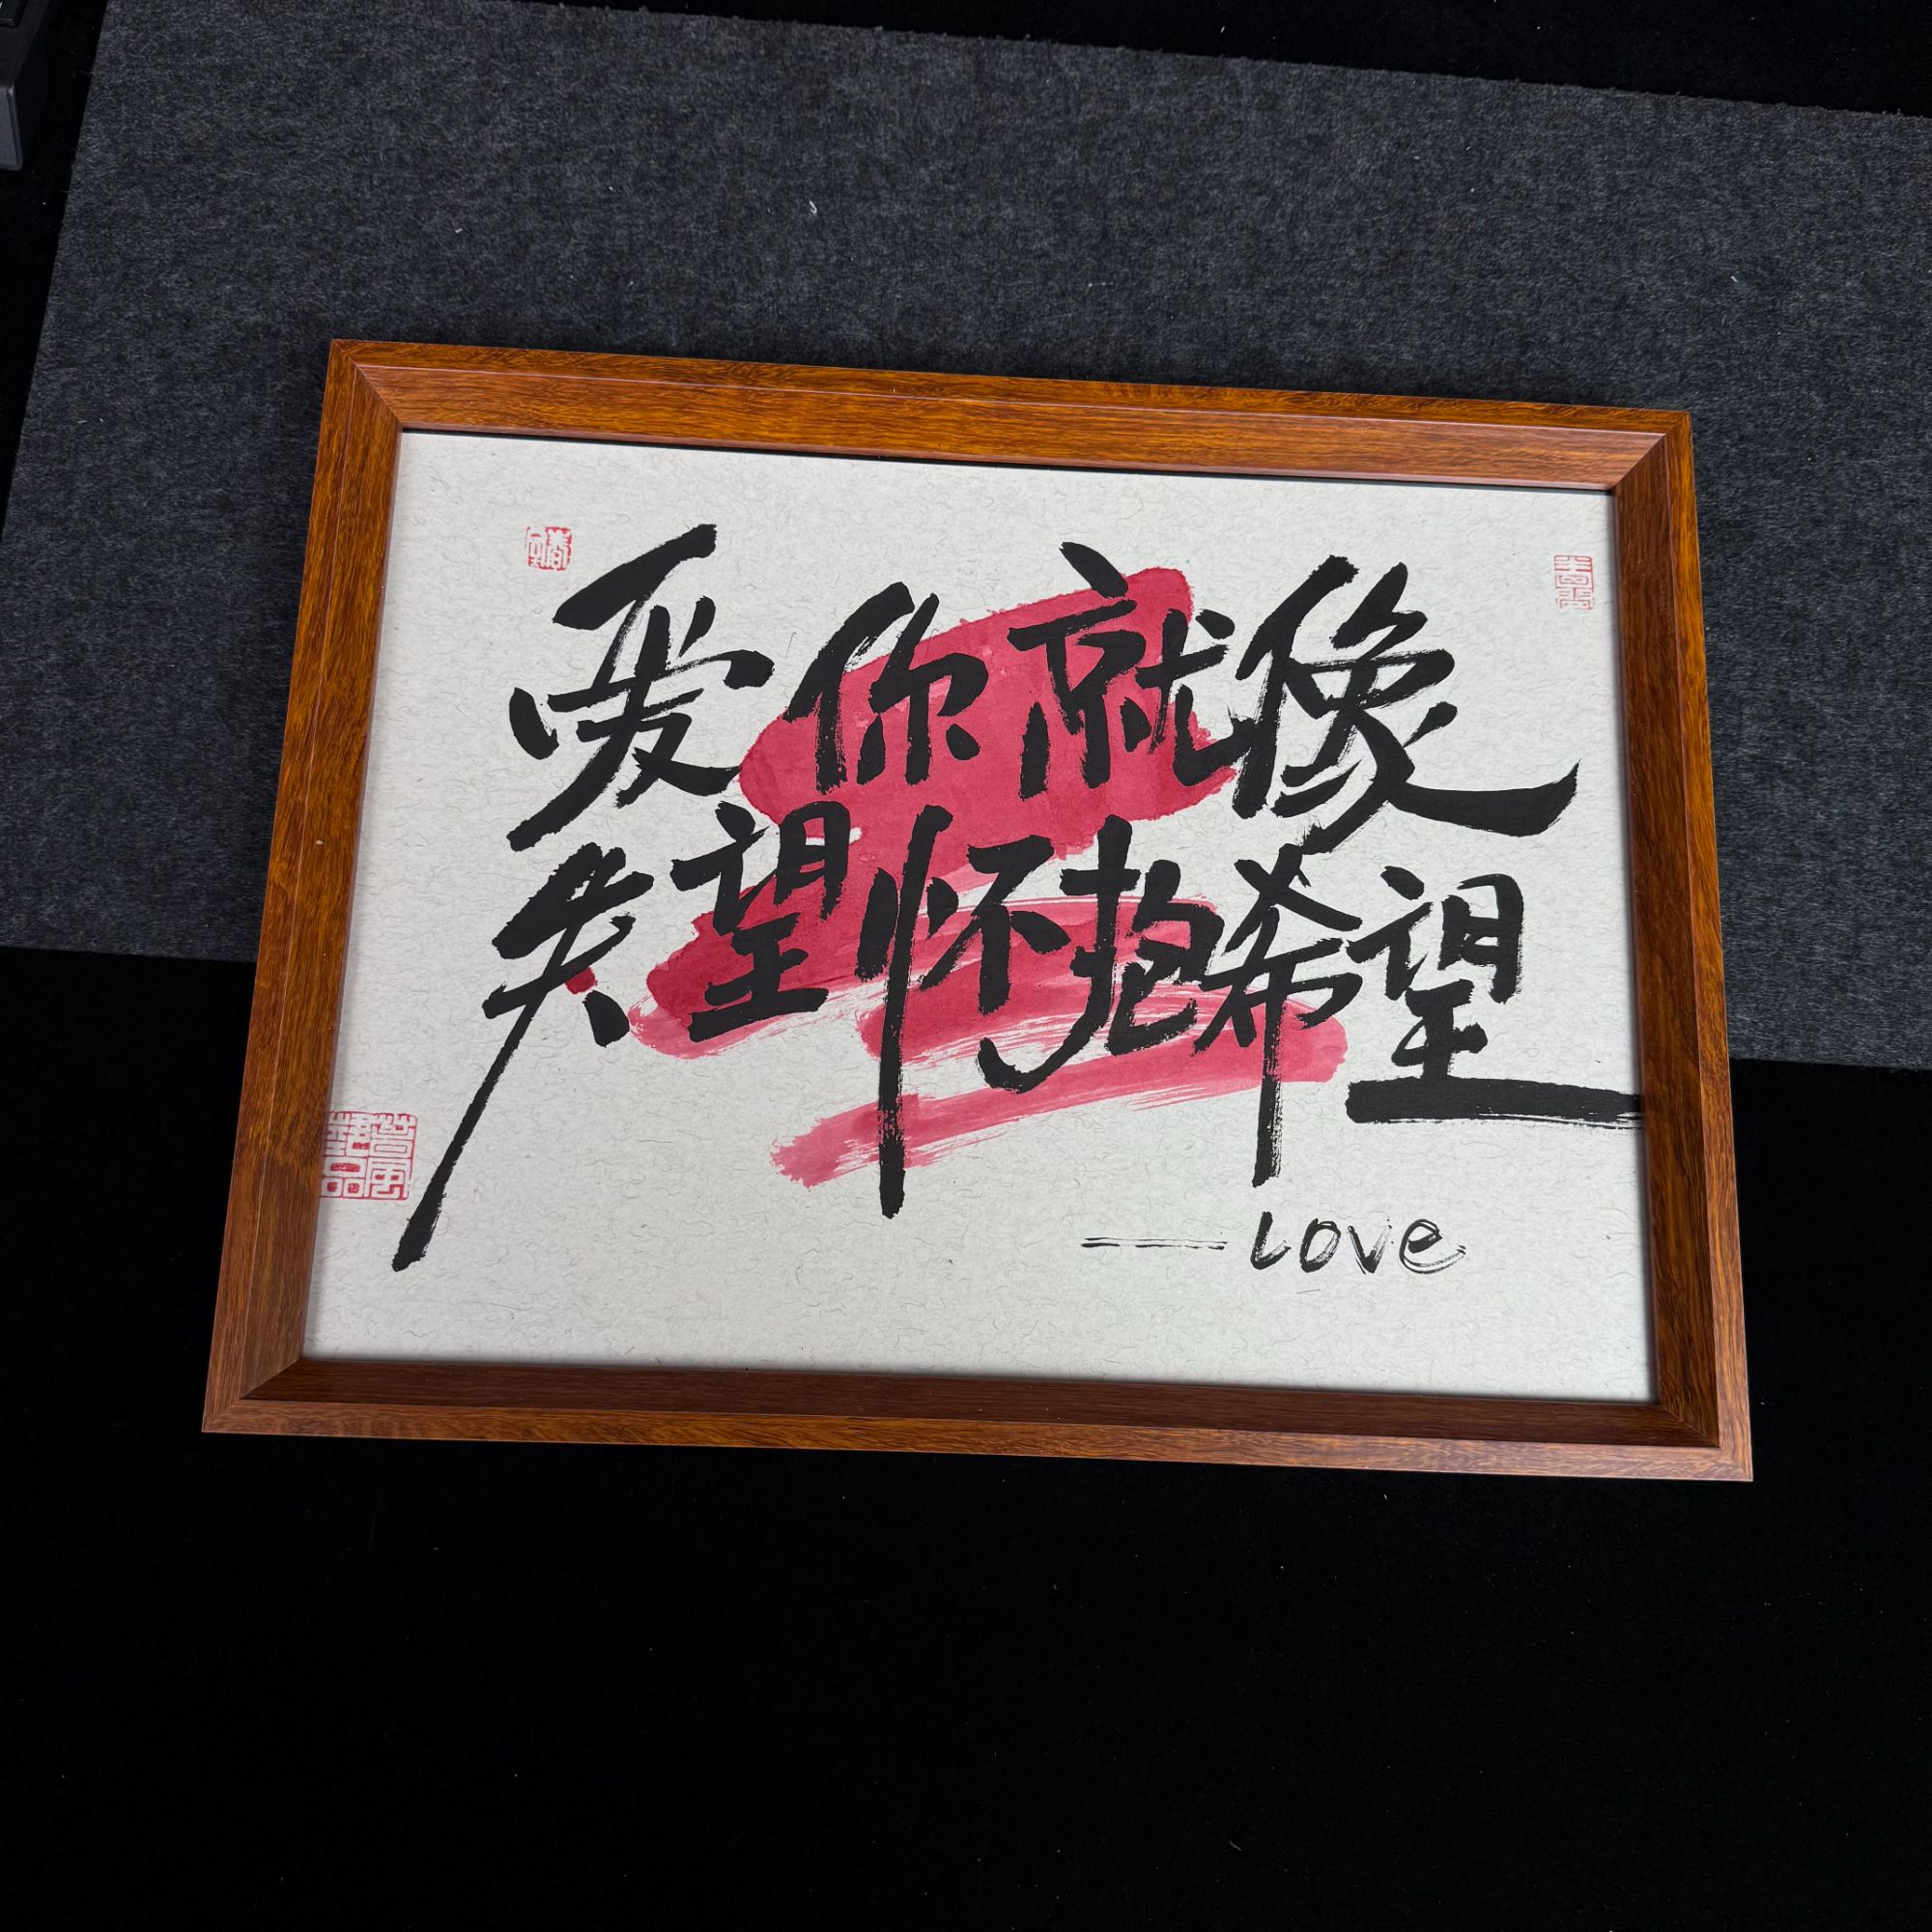 爱你就像
失望怀抱希望
——Love